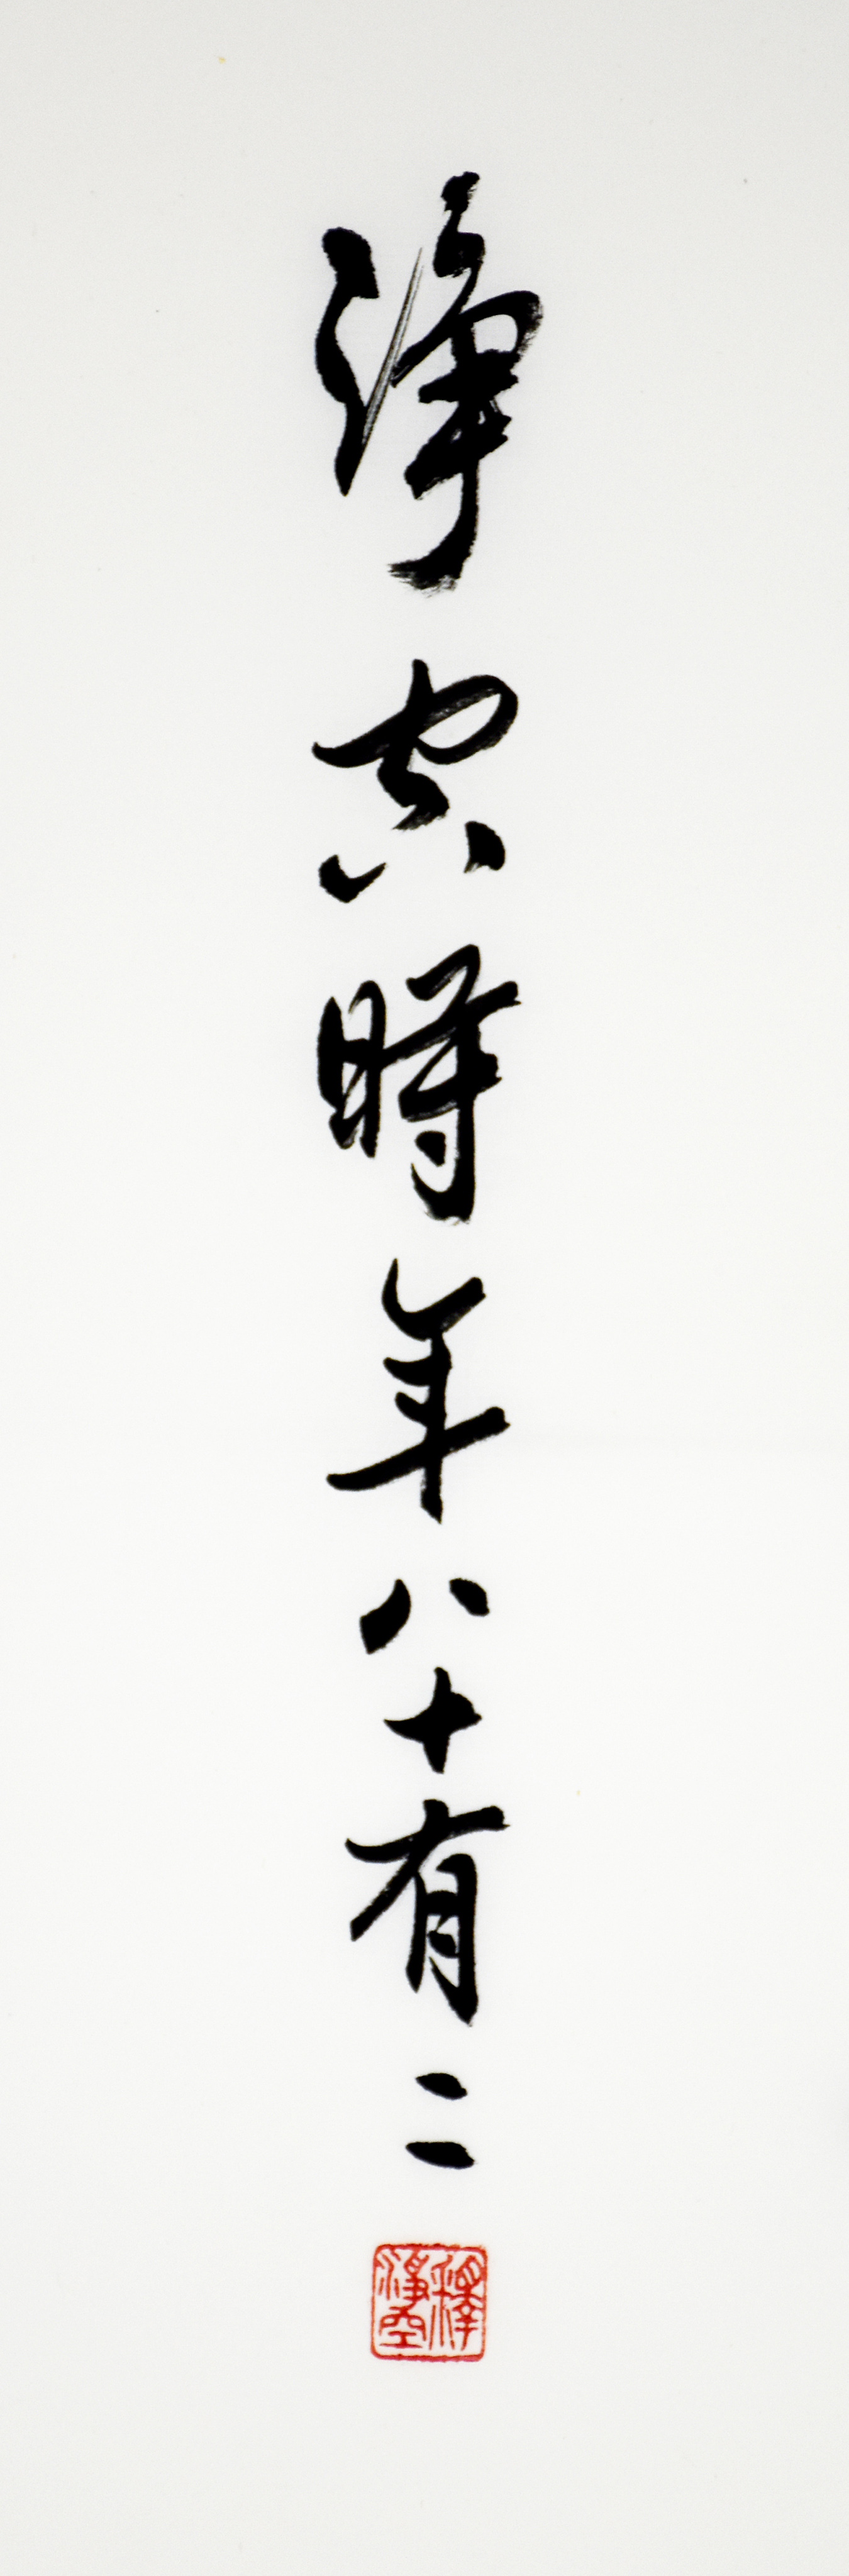 淨空時年八十有二
釋淨空